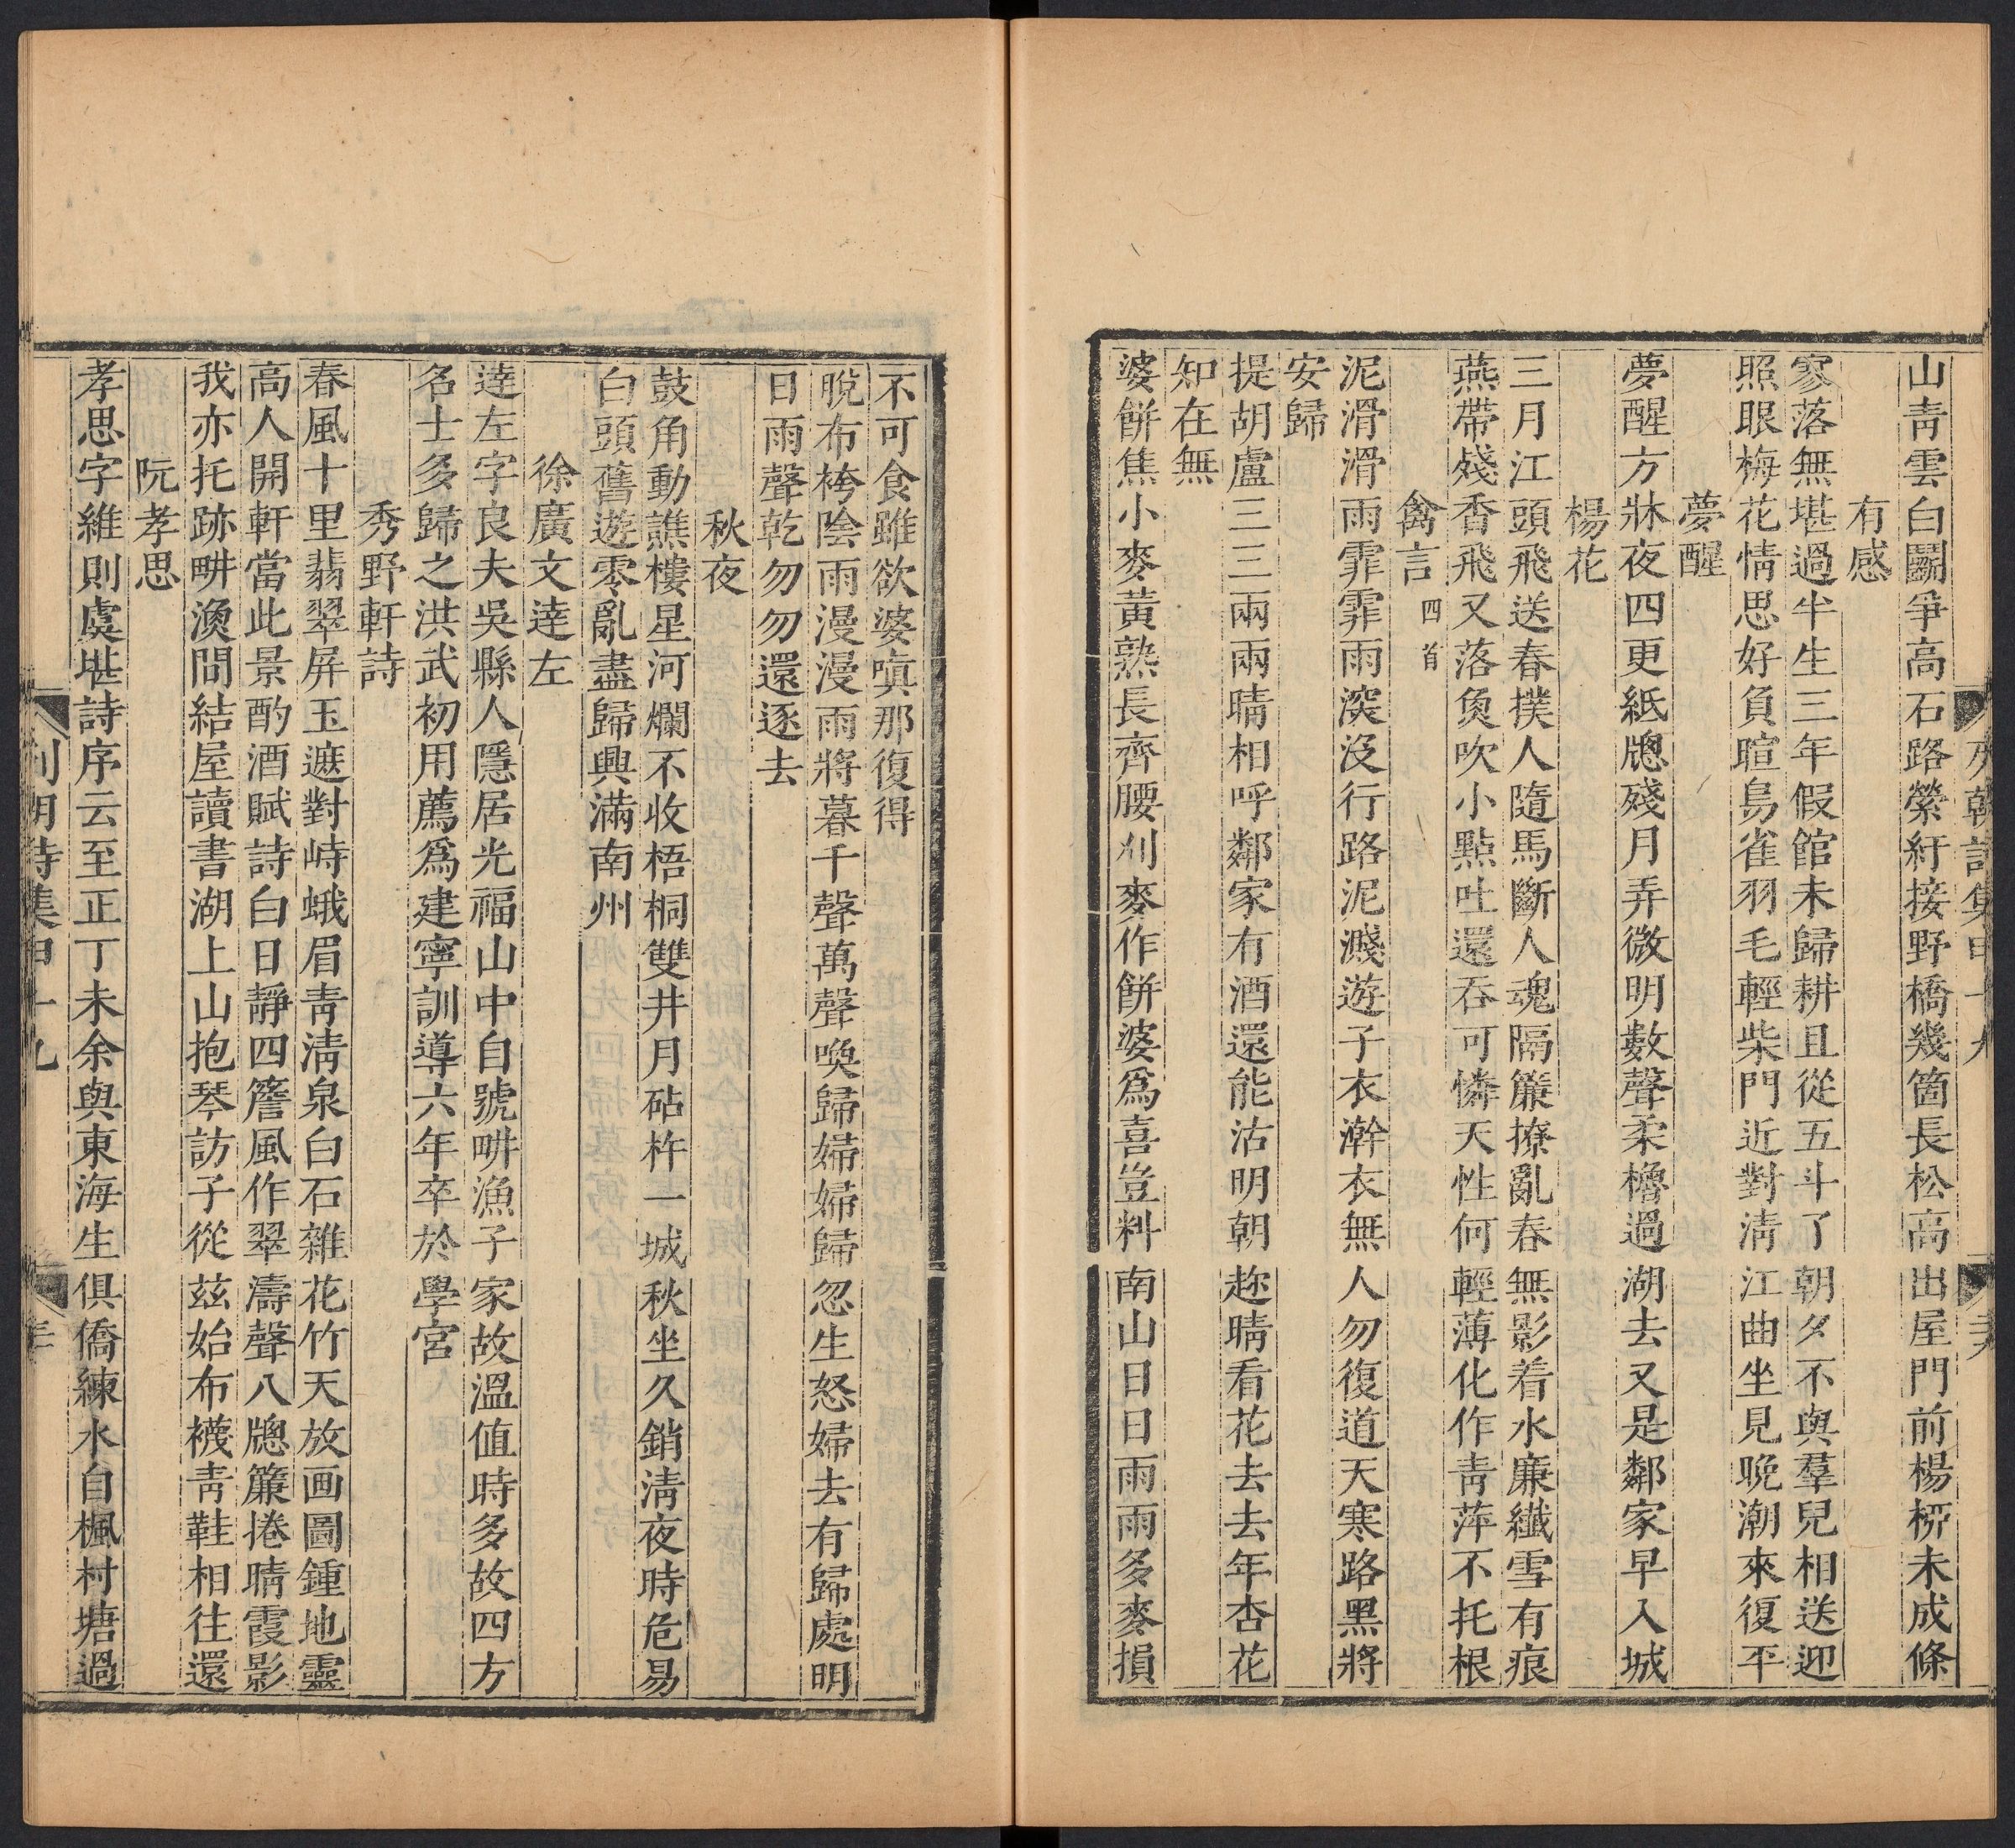 山靑雲白鬭爭高石路縈紆接野橋幾箇長松高出屋門前楊柳未成條
有感
寥落無堪過半生三年假館未歸耕且從五斗了朝夕不與羣兒相送迎
照眼梅花情思好負暄鳥雀羽毛輕柴門近對淸江曲坐見晚潮來復平
夢醒
夢醒方牀夜四更紙牕殘月弄微明數聲柔櫓過湖去又是鄰家早入城
楊花
三月江頭飛送春撲人隨馬斷人魂隔簾撩亂春無影着水廉纖雪有痕
燕帶殘香飛又落魚吹小點吐還吞可憐天性何輕薄化作靑萍不托根
禽言四首
泥滑滑雨霏霏雨深沒行路泥濺遊子衣澣衣無人勿復道天寒路黑將
安歸
提胡盧三三兩兩晴相呼鄰家有酒還能沽明朝趂晴看花去去年杏花
知在無
婆餅焦小麥黃熟長齊腰刈麥作餅婆爲喜豈料南山日日雨雨多麥損
不可食雖欲婆嗔那復得
脫布袴陰雨漫漫雨將暮千聲萬聲喚歸婦婦歸忽生怒婦去有歸處明
日雨聲乾勿勿還逐去
秋夜
鼓角動譙樓星河爛不收梧桐雙井月砧杵一城秋坐久銷淸夜時危易
白頭舊遊零亂盡歸興滿南州
徐廣文達左
達左字良夫吳縣人隱居光福山中自號畊漁子家故溫值時多故四方
名士多歸之洪武初用薦爲建寧訓導六年卒於學宮
秀野軒詩
春風十里翡翠屛玉遮對峙蛾眉靑淸泉白石雜花竹天放画圖鍾地靈
高人開軒當此景酌酒賦詩白日靜四簷風作翠濤聲八牕簾捲晴霞影
我亦托跡畊漁間結屋讀書湖上山抱琴訪子從茲始布襪靑鞋相往還
阮孝思
孝思字維則虞堪詩序云至正丁未余與東海生俱僑練水自楓村塘過
列朝詩集甲十九